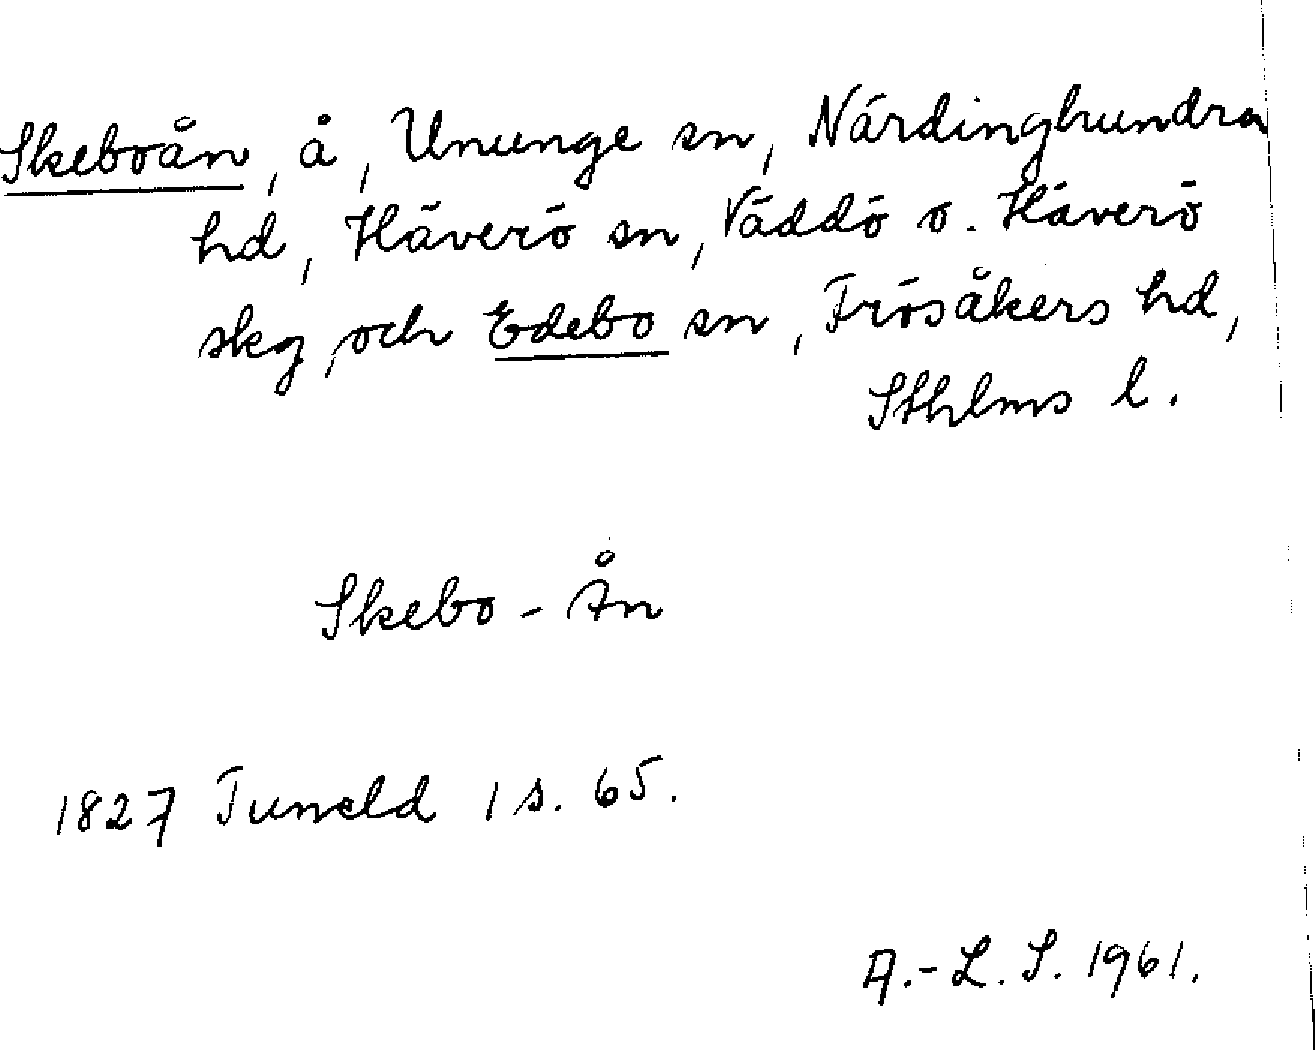 Skeboån, å, Ununge sn, Närdinghundra
hd, Häverö sn, Väddö o. Häverö
skg, och Edebo sn, Frösåkers hd,
Sthlms l.
Skebo-Ån
1827 Tuneld 1 s. 65.
A.-L. S. 1961.